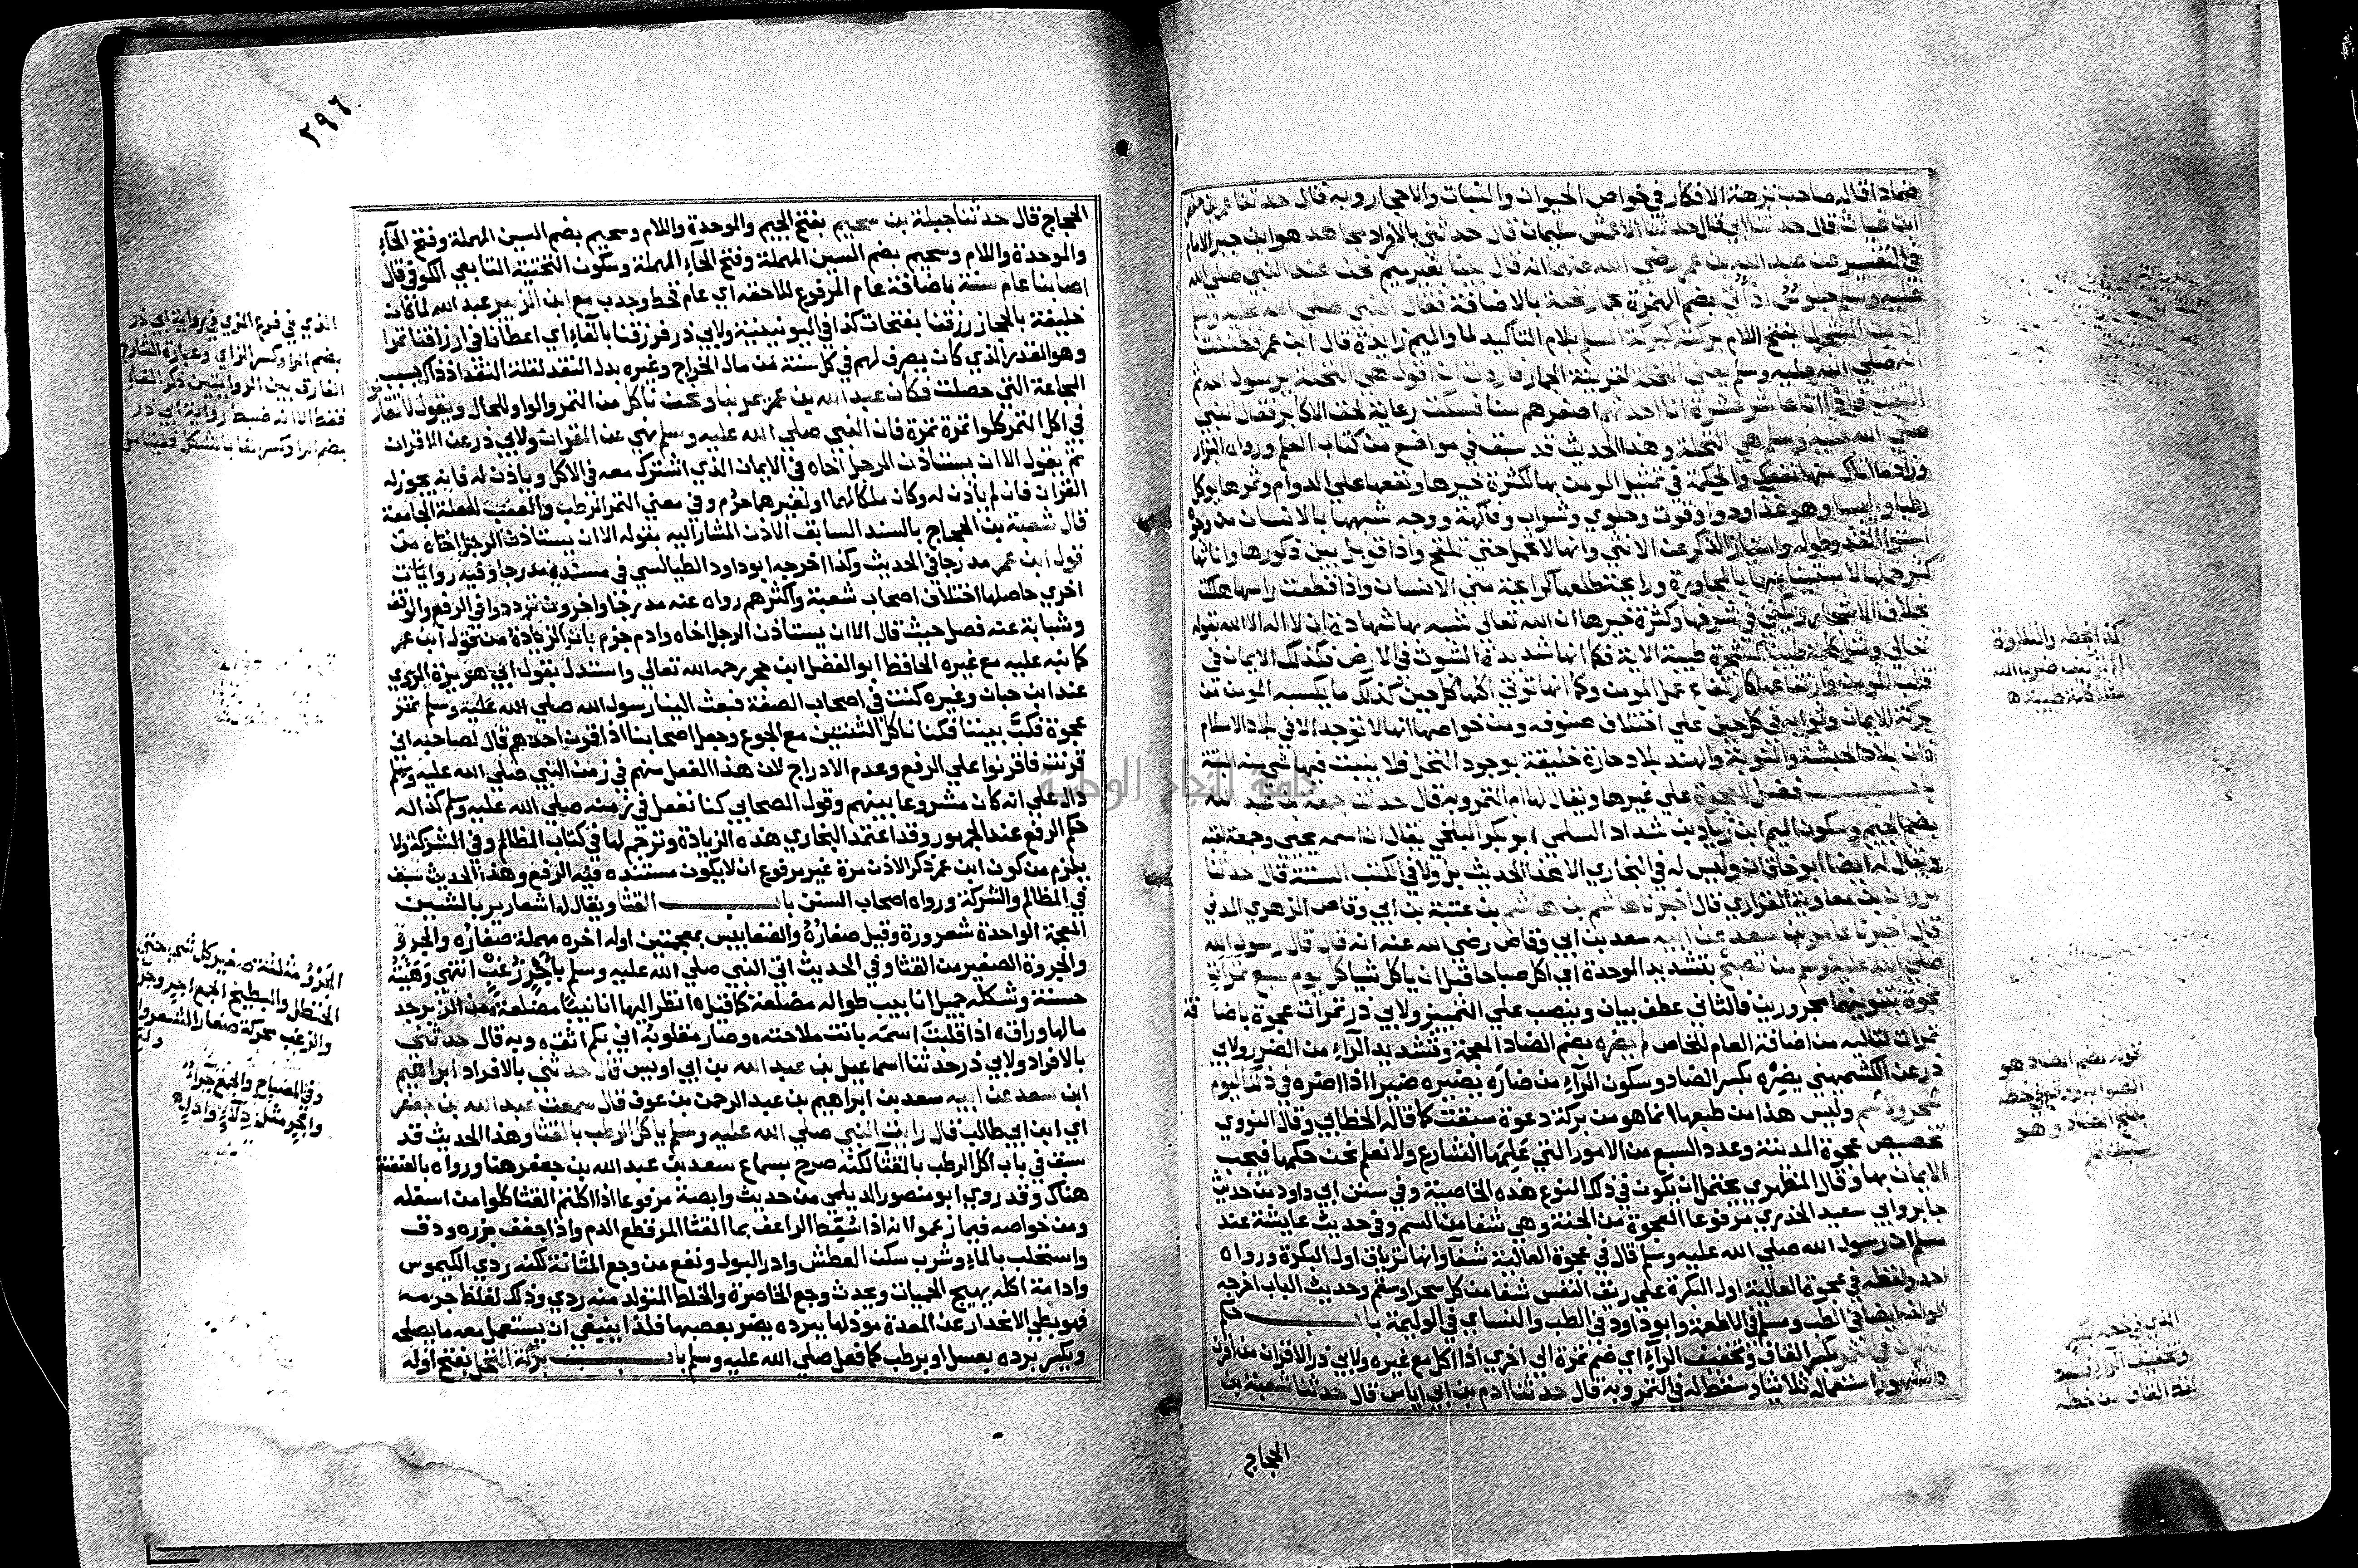 ضمادا قاله صاحب نزهة الافكار في خواص الحيوان والنبات والاحجار وبه قال حدثنا عمر بن حفص
ابن غياث قال حدثنا ابي قال حدثنا الاعمش سليمان قال حدثني بالافراد مجاهد هو ابن جبر الامام
في التفسير عن عبد الله بن عمر رضي الله عنهما انه قال بينا بغير ميم نحن عند النبي صلى الله
عليه وسلم جلوس اذ اتي بضم الهمزة بجمار نخلة بالاضافة فقال النبي صلى الله عليه وسلم
بفتح اللام بركته كبركة المسلم بلام التأكيد لما والميم زايدة قال ابن عمر فظننت
انه صلى الله عليه وسلم يعني النخلة لقرينة الجمار فاردت ان اقول هي النخلة يرسول الله ثم
التفت فاذا انا عاشر عشرة انا احدثهم اصغرهم سنا فسكت رعاية لحق الاكابر فقال النبي
صلى الله عليه وسلم هي النخلة وهذا الحديث قد سبق في مواضع من كتاب العلم ورواه البزار
والحكمة في تمثيل المومن بها لكثرة خيرها ونفعها على الدوام وثمرها يوكل
رطبا ويابسا وهو غذا ودوا وقوت وحلوى وشراب وفاكهة ووجه شبهها بالانسان من
استوا القد وطوله وامتياز الذكر عن الانثى وانها لا تحمل حتى تلقح واذا قوبل بين ذكورها واناثها
كثر حملها لاستيناسها بالمجاورة ورايحة طلعها كرايحة مني الانسان واذا قطعت راسها هلكت
بخلاف الاشجار وكثرة خيرها ان الله تعالى شبه بها شهادة ان لا اله الا الله بقوله
تعالى كشجرة طيبة الاية فكما انها شديدة الثبوت في الارض فكذلك الايمان في
قلب المومن وارتفاعها كارتفاع عمل المومن وكما انها توتي اكلها كل حين كذلك ما يكسبه المومن من
بركة الايمان وثوابه في كل حين على اختلاف صنوفه ومن خواصها انها لا توجد الا في بلاد الاسلام
فان بلاد الحبشة والنوبة والهند بلاد حارة خليقة بوجود النخل فلا ينبت فيها شي منه البتة
باب فضل العجوة على غيرها ويقال لها ام التمر وبه قال حدثنا جمعة بن عبد الله
بضم الجيم وسكون الميم ابن زياد بن شداد السلمي ابو بكر البلخي يقال ان اسمه يحيى وجمعة لقبه
ويقال له ايضا ابو خاقان وليس له في البخاري الا هذا الحديث بل ولا في الكتب الستة قال حدثنا
مروان بن معاوية الفزاري قال اخبرنا هاشم بن هاشم بن عتبة بن ابي وقاص الزهري المدني
قال اخبرنا عامر بن سعد عن ابيه سعد بن ابي وقاص رضي الله عنه انه قال قال رسول الله
صلى الله عليه وسلم من تصبح بتشديد الموحدة اي اكل صباحا قبل ان ياكل شيا كل يوم سبع تمرات
عجوة بتنوينهما مجرورين فالثاني عطف بيان وينصب على التمييز ولابي ذر تمرات عجوة باضافة
تمرات لتاليه من اضافة العام للخاص لم يضره بضم الضاد المعجمة وتشديد الراء من الضرر ولابي
ذر عن الكشميهني يضره بكسر الضاد وسكون الراء من ضاره يضيره ضيرا اذا اضره في ذلك اليوم
سحر ولا سم وليس هذا من طبعها انما هو من بركة دعوة سبقت كما قاله الخطابي وقال النووي
تخصيص عجوة المدينة وعدد السبع من الامور التي علمها الشارع ولا نعلم نحن حكمها فيجب
الايمان بها وقال المظهري يحتمل ان يكون في ذلك النوع هذه الخاصية وفي سنن ابي داود من حديث
جابر وابي سعيد الخدري مرفوعا العجوة من الجنة وهي شفا من السم وفي حديث عايشة عند
مسلم ان رسول الله صلى الله عليه وسلم قال في عجوة العالية شفا وانها ترياق اول البكرة ورواه
احمد ولفظه في عجوة العالية اول البكرة على ريق النفس شفا من كل سحر او سم وحديث الباب اخرجه
المولف ايضا في الطب ومسلم في الاطعمة وابو داود في الطب والنساي في الوليمة باب حكم
القران في التمر بكسر القاف وتخفيف الراء اي ضم تمرة الى اخرى اذا اكل مع غيره ولابي ذر الاقران من اقرن
والمشهور استعماله ثلاثيا وسقط له في التمر وبه قال حدثنا ادم بن ابي اياس قال حدثنا شعبة بن
الحجاج
كذا بخطه والتلاوة
الم تر كيف ضرب الله
مثلا كلمة طيبة
قوله بضم الضاد هو
٢٩٦
الحجاج قال حدثنا جبلة بن سحيم بفتح الجيم والموحدة واللام وسحيم بضم السين المهملة وفتح الحاء
والموحدة واللام وسحيم بضم السين المهملة وفتح الحاء المهملة وسكون التحتية التابعي الكوفي قال
اصابنا عام سنة باضافة عام المرفوع للاحقه اي عام قحط وجدب مع ابن الزبير عبد الله لما كان
خليفة بالحجاز رزقنا بفتحات كذا في اليونينية ولابي ذر فرزقنا بالفاء اي اعطانا في ارزاقنا تمرا
وهو القدر الذي كان يصرف لهم في كل سنة من مال الخراج وغيره بدل النقد لقلة النقد اذ ذاك بسبب
المجاعة التي حصلت فكان عبد الله بن عمر يمر بنا ونحن ناكل من التمر والواو للحال ويقول لا تقارنوا
في اكل التمر كلوا تمرة تمرة فان النبي صلى الله عليه وسلم نهى عن القران ولابي ذر عن الاقران
ثم يقول الا ان يستاذن الرجل اخاه في الايمان الذي اشترك معه في الاكل وياذن له فانه يجوز له
القران فان لم ياذن له وكان ملكا لهما او لغيرهما حرم وفي معنى التمر الرطب والعنب للعلة الجامعة
قال شعبة بن الحجاج بالسند السابق الاذن المشار اليه بقوله الا ان يستاذن الرجل اخاه من
قول ابن عمر مدرجا في الحديث وكذا اخرجه ابو داود الطيالسي في مسنده مدرجا وفيه روايات
اخرى حاصلها اختلاف اصحاب شعبة واكثرهم رواه عنه مدرجا واخرون ترددوا في الرفع والوقف
وشبابة عنه فصل حيث قال الا ان يستاذن الرجل اخاه وادم جزم بان الزيادة من قول ابن عمر
كما نبه عليه مع غيره الحافظ ابو الفضل ابن حجر رحمه الله تعالى واستدل بقول ابي هريرة المروي
عند ابن حبان وغيره كنت في اصحاب الصفة فبعث الينا رسول الله صلى الله عليه وسلم تمر
عجوة فكب بيننا فكنا ناكل الثنتين مع الجوع وجعل اصحابنا اذا قرن احدهم قال لصاحبه اني
قرنت فاقرنوا على الرفع وعدم الادراج لان هذا الفعل منهم في زمن النبي صلى الله عليه وسلم
دال على انه كان مشروعا بينهم وقول الصحابي كنا نفعل في زمنه صلى الله عليه وسلم كذا له
حكم الرفع عند الجمهور وقد اعتمد البخاري هذه الزيادة وترجم لها في كتاب المظالم وفي الشركة ولا
يلزم من كون ابن عمر ذكر الاذن مرة غير مرفوع ان لا يكون مستنده فيه الرفع وهذا الحديث سبق
في المظالم والشركة ورواه اصحاب السنن باب القثا ويقال له اشعارير بالشين
المعجمة الواحدة شعرورة وقيل صغاره والضغابيس بمعجمتين اوله اخره مهملة صغاره والجرو
والجروة الصغير من القثا وفي الحديث اتي النبي صلى الله عليه وسلم باجر زغب انتهى وهيئته
حسنة وشكله جميل انابيب طوالة مضلعة كما قيل انظر اليها انابيبا مضلعة من الزبرجد
مالها ورق اذا قلبت اسمه بانت ملاحته وصار مقلوبه اني بكم اثق وبه قال حدثني
بالافراد ولابي ذر حدثنا اسماعيل بن عبد الله بن ابي اويس قال حدثني بالافراد ابراهيم
ابن سعد عن ابيه سعد بن ابراهيم بن عبد الرحمن بن عوف قال سمعت عبد الله بن جعفر
اي ابن ابي طالب قال رايت النبي صلى الله عليه وسلم ياكل الرطب بالقثا وهذا الحديث قد
سبق في باب اكل الرطب بالقثا لكنه صرح بسماع سعد بن عبد الله بن جعفر هنا ورواه بالعنعنة
هناك وقد روى ابو منصور الديلمي من حديث وابصة مرفوعا اذا اكلتم القثا كلوا من اسفله
ومن خواصه فيما زعموا انه اذا اسقط الراعف بما القثا المر قطع الدم واذا جفف بزره ودق
واستحلب بالماء وشرب سكن العطش وادر البول ونفع من وجع المثانة لكنه ردي الكيموس
وادامة اكله يهيج الحميات ويحدث وجع الخاصرة والخلط المتولد منه ردي وذلك لغلظ جرمه
فهو بطي الانحدار عن المعدة موذ لها ببرده يضر بعصبها فلذا ينبغي ان يستعمل معه ما يصلحه
ويكسر برده بعسل او برطب كما فعل صلى الله عليه وسلم باب بركة النخل بفتح اوله
الذي في فرع المزي في رواية ابي ذر
بضم الرا وكسر الزاي وعبارة الشارح
الفارق بين الروايتين ذكر الفاء
فقط الا انه ضبط رواية ابي ذر
الجرو مثلثة صغير كل شي حتى
الحنظل والبطيخ الجمع اجر وجرا
والزغب محركة صغار الشعر